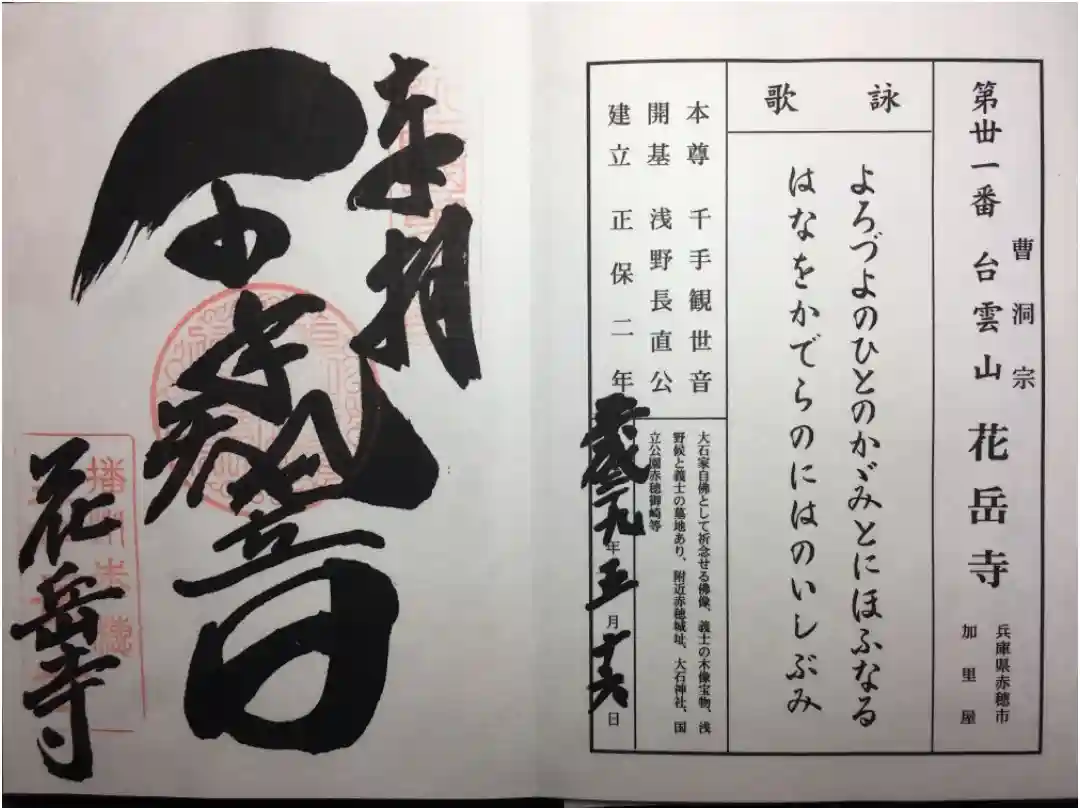 曹洞宗
第丗一番 台雲山 花岳寺
兵庫県赤穂市
加里屋
詠歌
よろづよのひとのかゞみとにほふなる
はなをかでらのにはのいしぶみ
本尊 千手観世音
開基 浅野長直公
建立 正保二年
大石家自佛として祈念せる佛像、義士の木像宝物、浅
野候と義士の墓地あり、附近赤穂城址、大石神社、国
立公園赤穂御崎等
年 月十六日
奉拝
千手観世音
花岳寺
播州赤穂